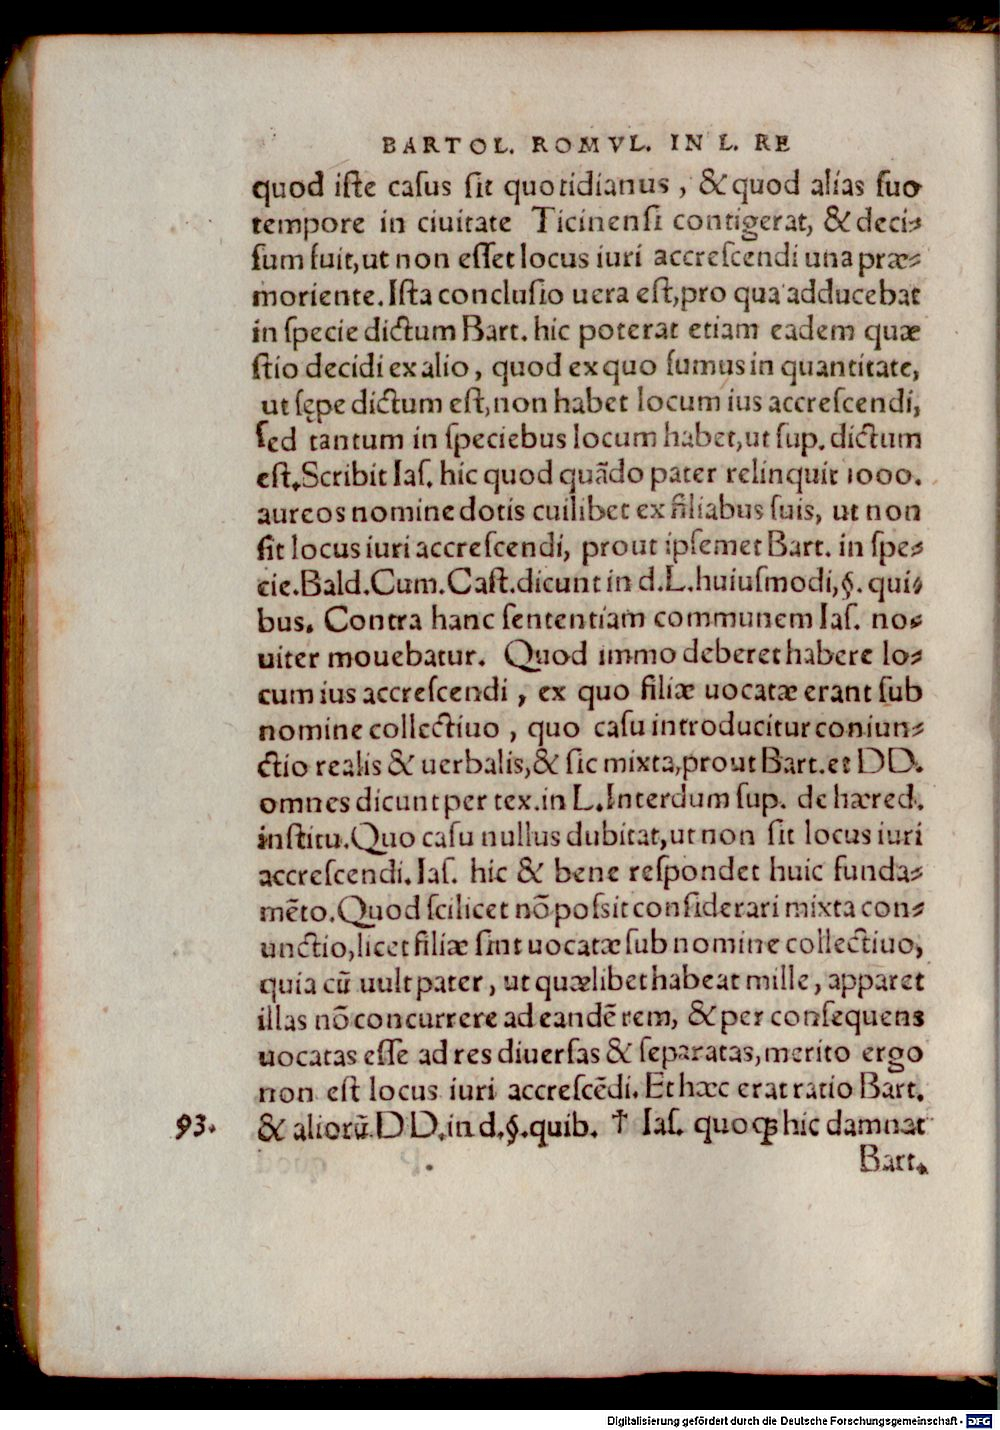 BARTOL. ROMVL. IN L. RE
quod iste casus sit quotidianus, & quod aliás suo
tempore in ciuitate Ticinensi contigerat, & deci-
sum fuit, ut non esset locus iuri accrescendi una præ-
moriente. Ista conclusio uera est, pro qua adducebat
in specie dictum Bart. hic poterat etiam eadem quæ
stio decidi ex alio, quod ex quo sumus in quantitate,
ut sępe dictum est, non habet locum ius accrescendi,
sed tantum in speciebus locum habet, ut sup. dictum
est. Scribit Ias. hic quod quãdo pater relinquit 1000.
aureos nomine dotis cuilibet ex filiabus suis, ut non
sit locus iuri accrescendi, prout ipsemet Bart. in spe-
cie. Bald. Cum. Cast. dicunt in d. L. huiusmodi, §. qui-
bus. Contra hanc sententiam communem Ias. no-
uiter mouebatur. Quod immo deberet habere lo-
cum ius accrescendi, ex quo filiæ uocatæ erant sub
nomine collectiuo, quo casu introducitur coniun-
ctio realis & uerbalis, & sic mixta, prout Bart. et DD.
omnes dicunt per tex. in L. Interdum sup. de hæred.
institu. Quo casu nullus dubitat, ut non sit locus iuri
accrescendi. Ias. hic & bene respondet huic funda-
mẽto. Quod scilicet nõ possit considerari mixta con-
unctio, licet filiæ sint uocatæ sub nomine collectiuo,
quia cũ uult pater, ut quælibet habeat mille, apparet
illas nõ concurrere ad eandẽ rem, & per consequens
uocatas esse ad res diuersas & separatas, merito ergo
non est locus iuri accrescẽdi. Et hæc erat ratio Bart.
93. & aliorũ. DD. in d. §. quib. † Ias. quoqꝫ hic damnat
Bart.
Digitalisierung gefördert durch die Deutsche Forschungsgemeinschaft - DFG